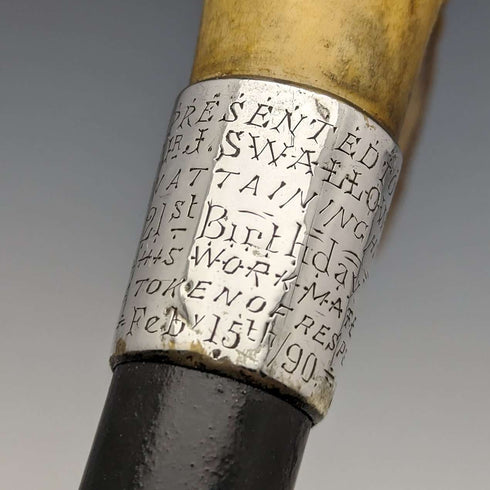 PRESENTED TO
MR J. SWALLOW
ATTAINING
21st Birthday
HIS WORK MATE
TOKEN OF RESP
Feby 15th/90